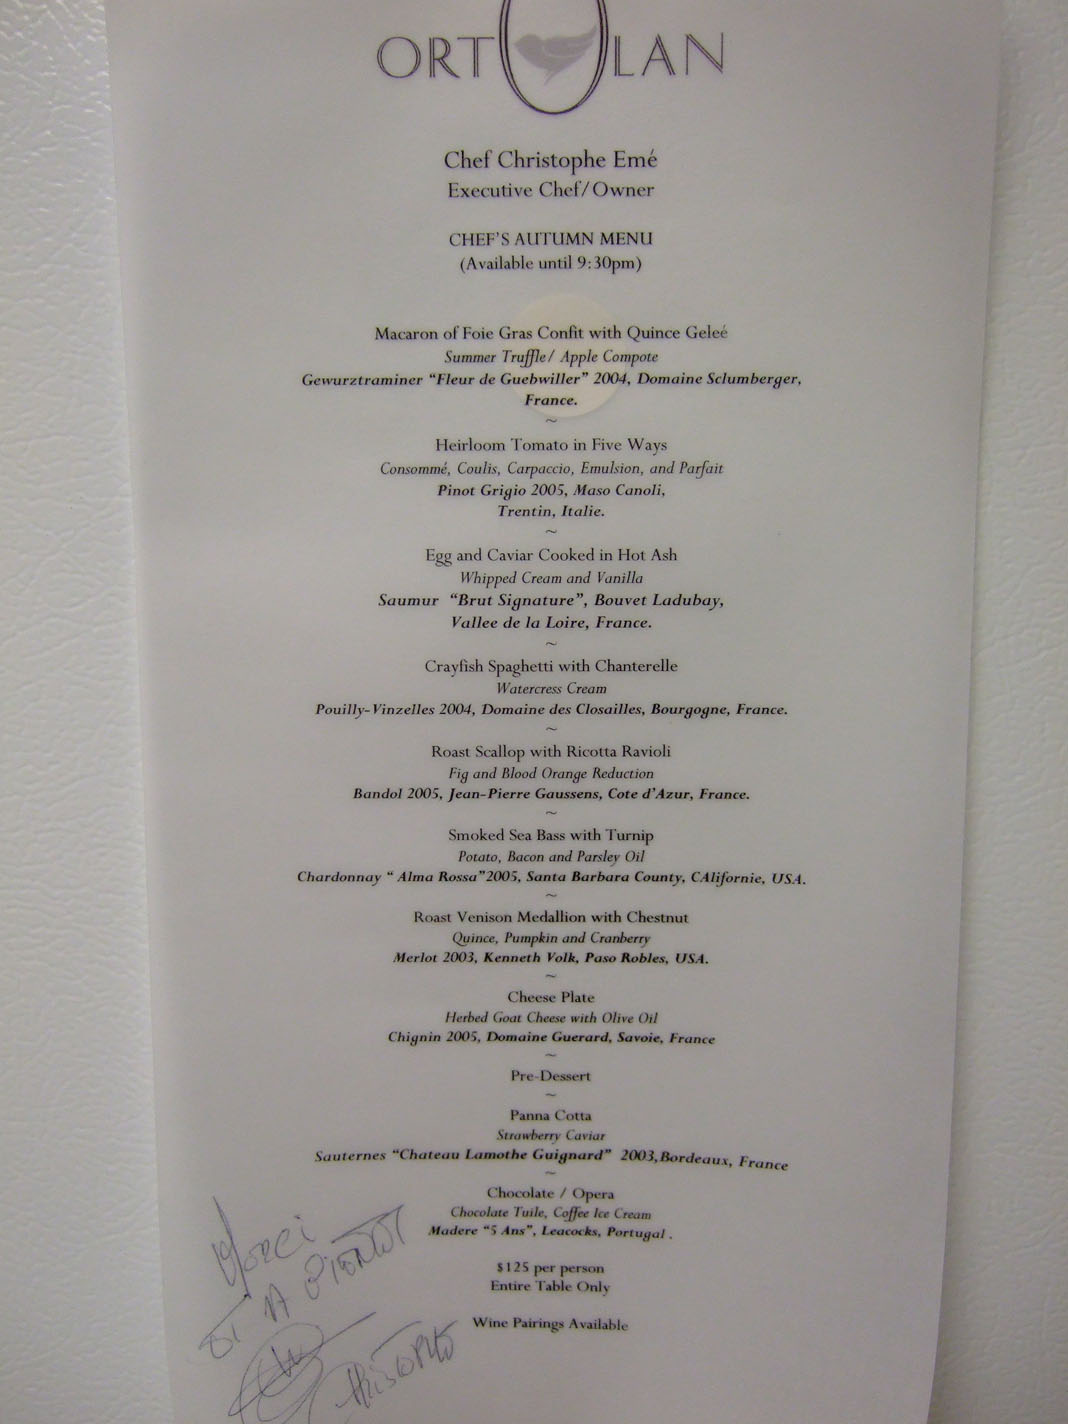 ORTOLAN
Chef Christophe Emé
Executive Chef/Owner
CHEF'S AUTUMN MENU
(Available until 9:30pm)
Macaron of Foie Gras Confit with Quince Geleé
Summer Truffle/ Apple Compote
Gewurztraminer “Fleur de Guebwiller” 2004, Domaine Sclumberger,
France.
~
Heirloom Tomato in Five Ways
Consommé, Coulis, Carpaccio, Emulsion, and Parfait
Pinot Grigio 2005, Maso Canoli,
Trentin, Italie.
~
Egg and Caviar Cooked in Hot Ash
Whipped Cream and Vanilla
Saumur “Brut Signature”, Bouvet Ladubay,
Vallee de la Loire, France.
~
Crayfish Spaghetti with Chanterelle
Watercress Cream
Pouilly-Vinzelles 2004, Domaine des Closailles, Bourgogne, France.
~
Roast Scallop with Ricotta Ravioli
Fig and Blood Orange Reduction
Bandol 2005, Jean-Pierre Gaussens, Cote d'Azur, France.
~
Smoked Sea Bass with Turnip
Potato, Bacon and Parsley Oil
Chardonnay “ Alma Rossa”2005, Santa Barbara County, CAlifornie, USA.
~
Roast Venison Medallion with Chestnut
Quince, Pumpkin and Cranberry
Merlot 2003, Kenneth Volk, Paso Robles, USA.
~
Cheese Plate
Herbed Goat Cheese with Olive Oil
Chignin 2005, Domaine Guerard, Savoie, France
~
Pre-Dessert
~
Panna Cotta
Strawberry Caviar
Sauternes “Chateau Lamothe Guignard” 2003,Bordeaux, France
~
Chocolate / Opera
Chocolate Tuile, Coffee Ice Cream
Madere “5 Ans”, Leacocks, Portugal .
$125 per person
Entire Table Only
Wine Pairings Available
Merci
et A Bientot